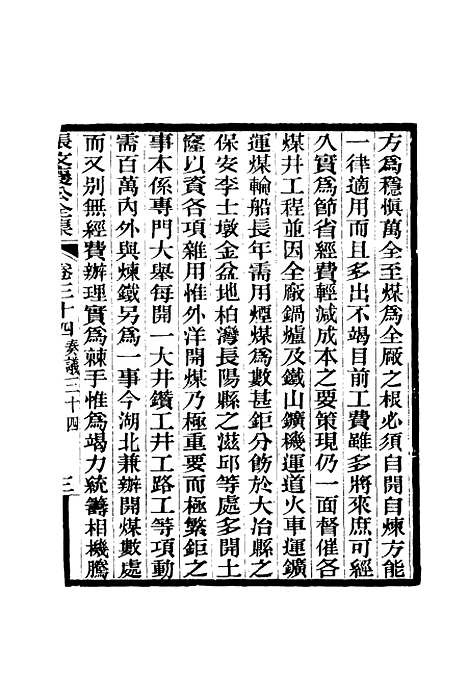 方爲穩愼萬全至煤爲全廠之根必須自開自煉方能
一律適用而且多出不竭目前工費雖多將來庶可經
久實爲節省經費輕減成本之要策現仍一面督催各
煤井工程並因全廠鍋爐及鐵山鑛機運道火車運鑛
運煤輪船長年需用煙煤爲數甚鉅分飭於大冶縣之
保安李士墩金盆地柏灣長陽縣之滋邱等處多開土
窿以資各項雜用惟外洋開煤乃極重要而極繁鉅之
事本係專門大舉每開一大井鑽工井工路工等項動
需百萬內外與煉鐵另爲一事今湖北兼辦開煤數處
而又別無經費辦理實爲棘手惟爲竭力統籌相機騰
張文襄公全集 卷三十四 奏議三十四 三